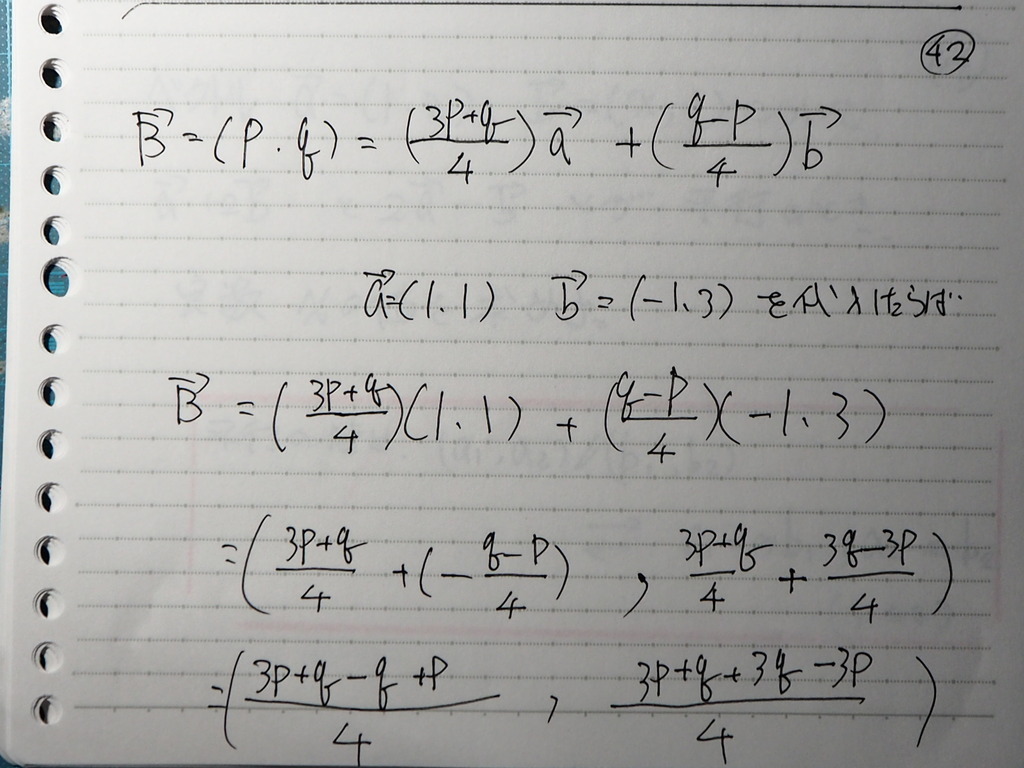 ㊷
B⃗ = (p.q) = (3p+q/4)a⃗ + (q-p/4)b⃗
a⃗=(1.1) b⃗=(-1.3) を代入すれば
B⃗ = (3p+q/4)(1.1) + (q-p/4)(-1.3)
=(3p+q/4 + (- q-p/4) , 3p+q/4 + 3q-3p/4)
=(3p+q-q+p/4 , 3p+q+3q-3p/4)